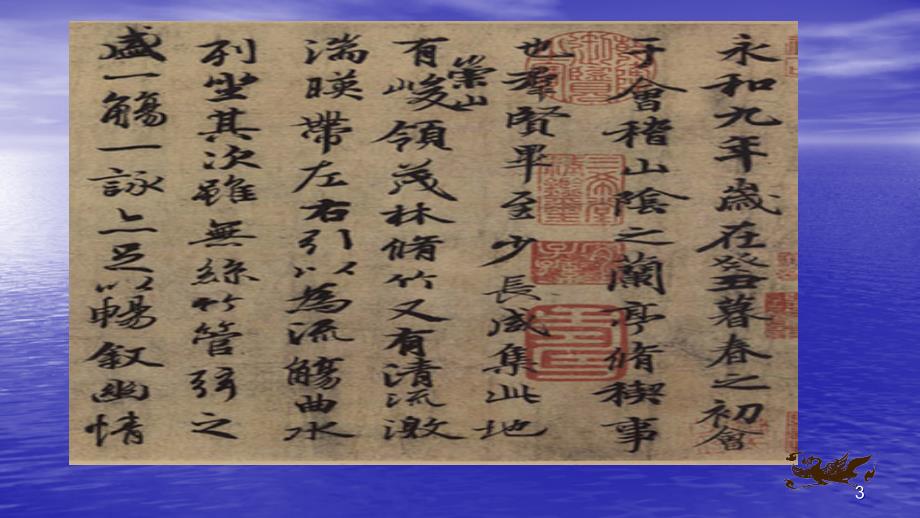 永和九年歲在癸丑暮春之初會
于會稽山陰之蘭亭脩稧事
也羣賢畢至少長咸集此地
有崇山峻領茂林脩竹又有清流激
湍暎帶左右引以為流觴曲水
列坐其次雖無絲竹管弦之
盛一觴一詠亦足以暢敘幽情
3